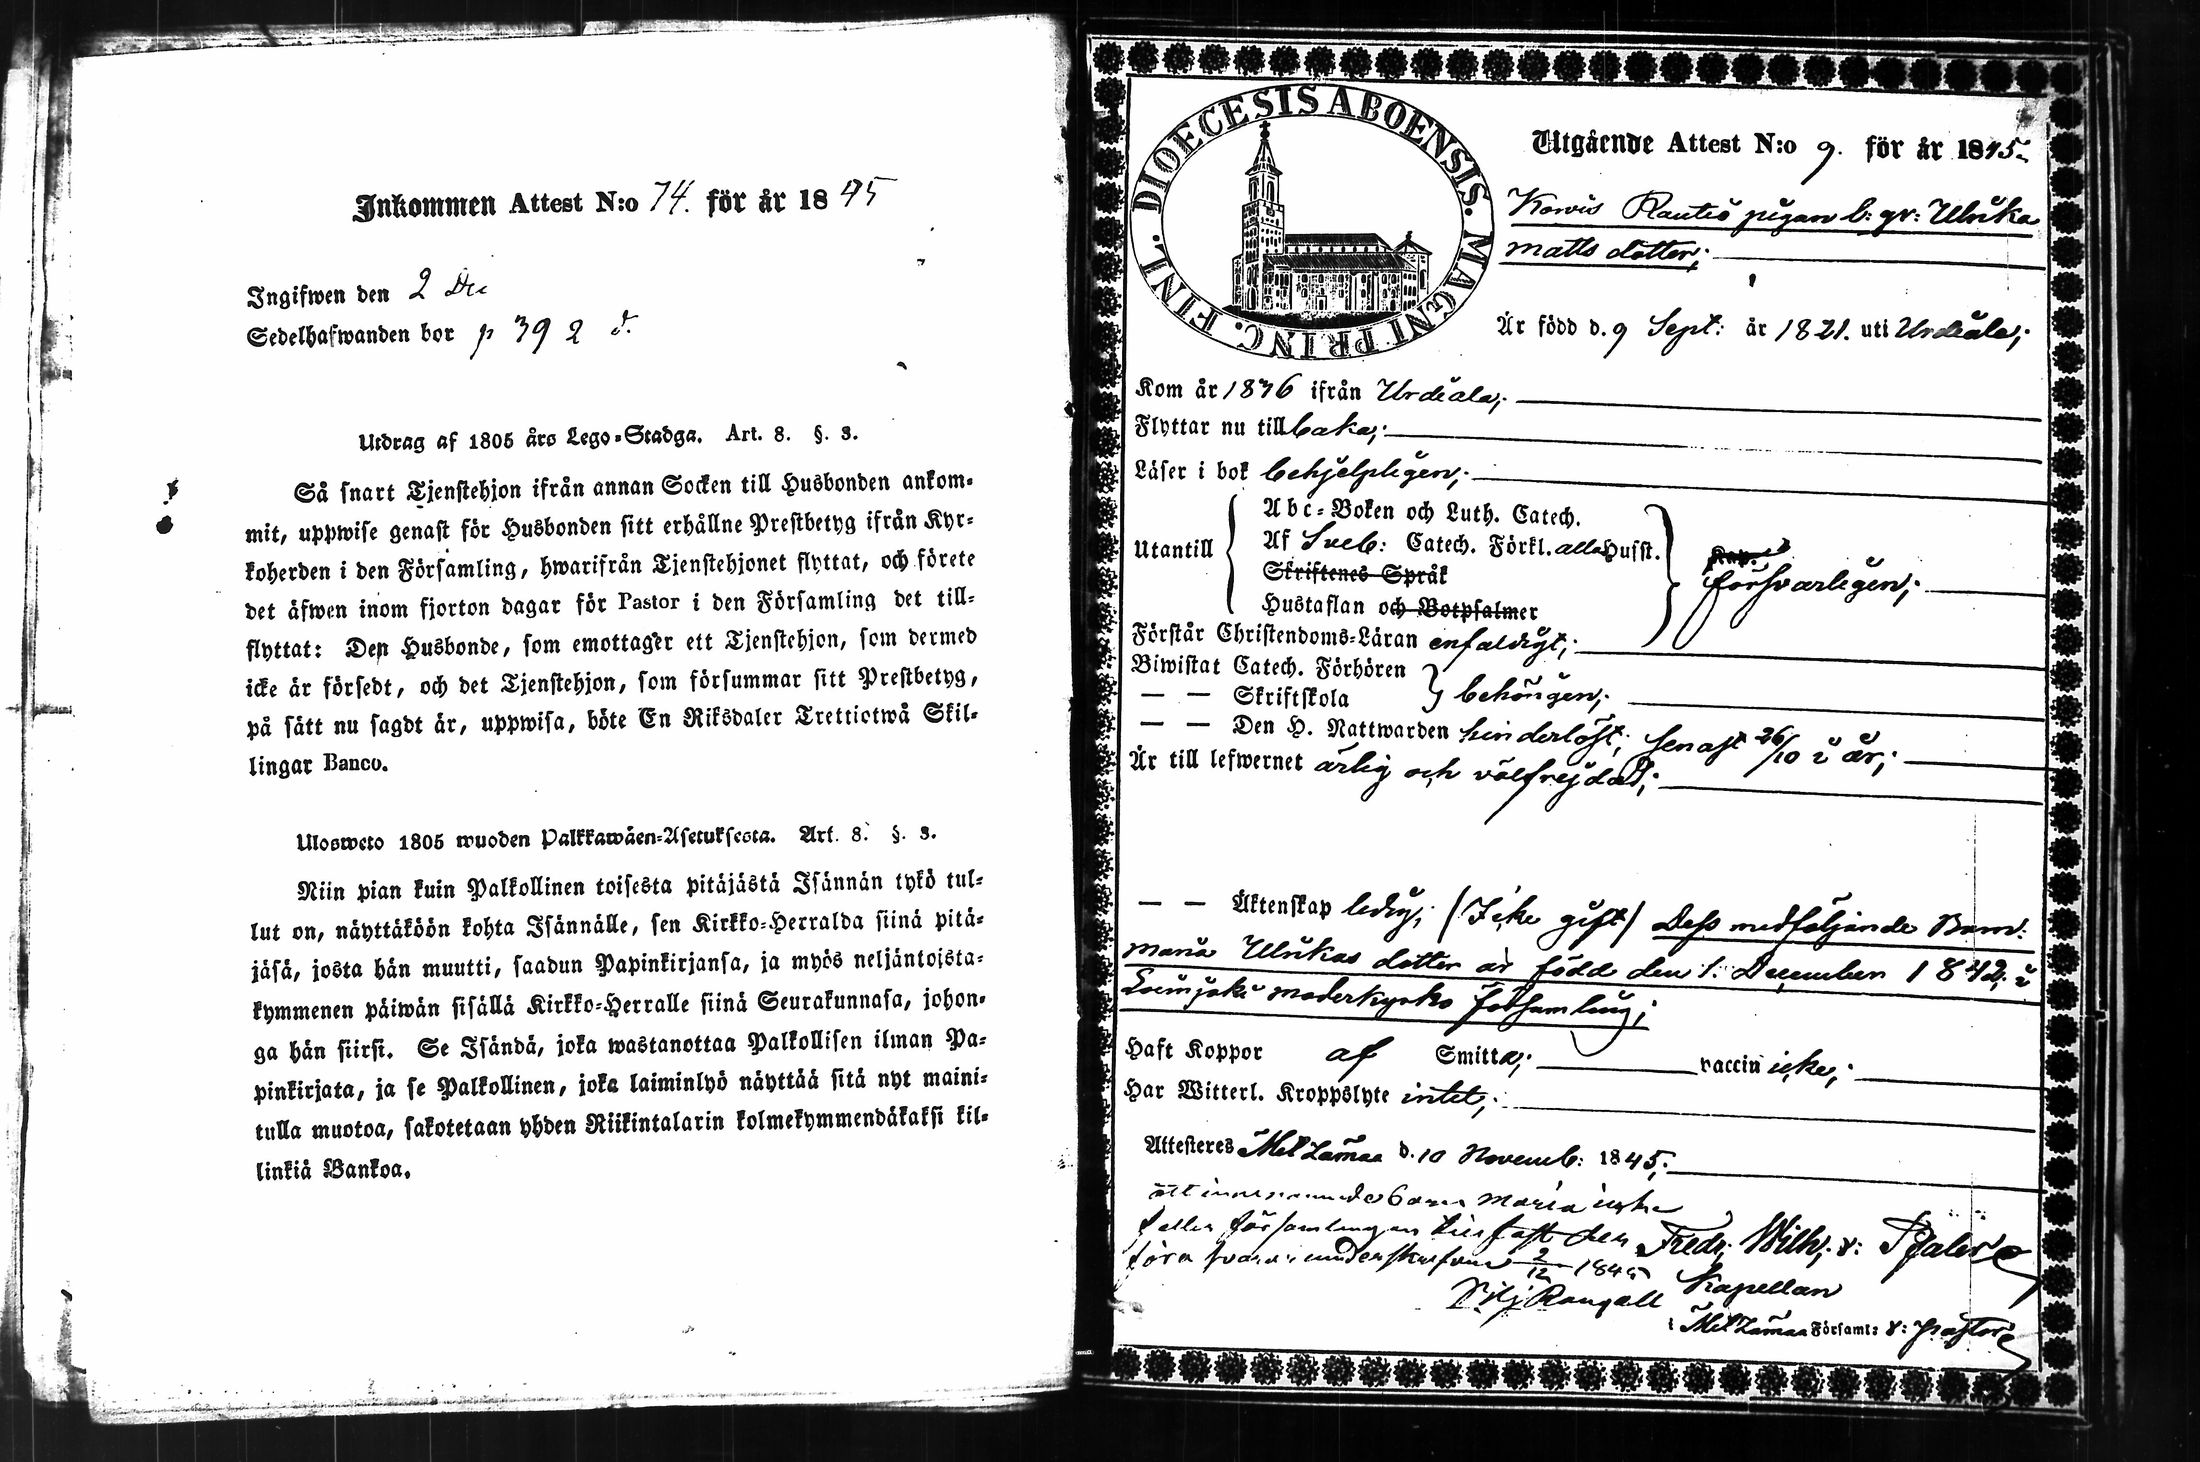 Inkommen Attest N:o 74. för år 1845
Ingifwen den 2 Dec
Sedelhafwanden bor p 392
Utdrag af 1805 års Lego-Stadga. Art. 8. §. 3.
Så snart Tjenstehjon ifrån annan Socken till Husbonden ankom-
mit, uppwise genast för Husbonden sitt erhållne Prestbetyg ifrån Kyr-
koherden i den Församling, hwarifrån Tjenstehjonet flyttat, och förete
det äfwen inom fjorton dagar för Pastor i den Församling det till-
flyttat: Den Husbonde, som emottager ett Tjenstehjon, som dermed
icke är försedt, och det Tjenstehjon, som försummar sitt Prestbetyg,
på sätt nu sagdt är, uppwisa, böte En Riksdaler Trettiotwå Skil-
lingar Banco.
Ulosweto 1805 wuoden Palkkawäen-Asetuksesta. Art. 8. §. 3.
Niin pian kuin Palkollinen toisesta pitäjästä Isännän tykö tul-
lut on, näyttäköön kohta Isännälle, sen Kirkko-Herralda siinä pitä-
jäsä, josta hän muutti, saadun Papinkirjansa, ja myös neljäntoista-
kymmenen päiwän sisällä Kirkko-Herralle siinä Seurakunnasa, johon-
ga hän siirsi. Se Isändä, joka wastanottaa Palkollisen ilman Pa-
pinkirjata, ja se Palkollinen, joka laiminlyö näyttää sitä nyt maini-
tulla muotoa, sakotetaan yhden Riikintalarin kolmekymmendäkaksi kil-
linkiä Bankoa.
DIOECESIS ABOENSIS. MAGNI PRINC. FINL.
Utgående Attest N:o 9. för år 1845.
Rautio pigan b: gr: Ulrika
Matts dotter;
Är född d. 9 Sept: år 1821. uti Urdiala;
Kom år 1836 ifrån Urdiala;
Flyttar nu tillbaka;
Läser i bok behjelpligen;
Utantill
Abc-Boken och Luth. Catech.
Af Sveb: Catech. Förkl. alla Husst.
Skriftenes Språk
Hustaflan och Botpsalmer
försvarligen;
Förstår Christendoms-Läran enfaldigt;
Biwistat Catech. Förhören
— — Skriftskola
behörigen;
— — Den H. Nattwarden hinderlöst; senast 26/10 i år;
Är till lefwernet ärlig och välfrejdad;
— — Äktenskap ledig; (Icke gift) Dess medföljande Barn:
Maria Ulrikas dotter är född den 1. December 1842. i
Loimjoki moderkyrko församling;
Haft Koppor af Smitta; vaccin icke;
Har Witterl. Kroppslyte intet;
Attesteres Metzämaa d. 10 Novemb: 1845;
att Barn Maria icke
församlingen
2/12 1845
Fredr. Wilh: v: Pfaler
Kapellan
i Metzämaa Församl: v: pastor